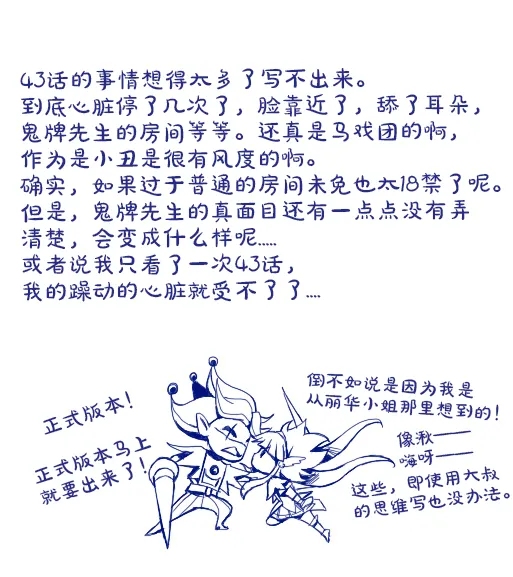 43话的事情想得太多了写不出来。
到底心脏停了几次了，脸靠近了，舔了耳朵，
鬼牌先生的房间等等。还真是马戏团的啊，
作为是小丑是很有风度的啊。
确实，如果过于普通的房间未免也太18禁了呢。
但是，鬼牌先生的真面目还有一点点没有弄
清楚，会变成什么样呢.....
或者说我只看了一次43话，
我的躁动的心脏就受不了了....
正式版本！
正式版本马上
就要出来了！
倒不如说是因为我是
从丽华小姐那里想到的！
像湫——
嗨呀——
这些，即使用大叔
的思维写也没办法。